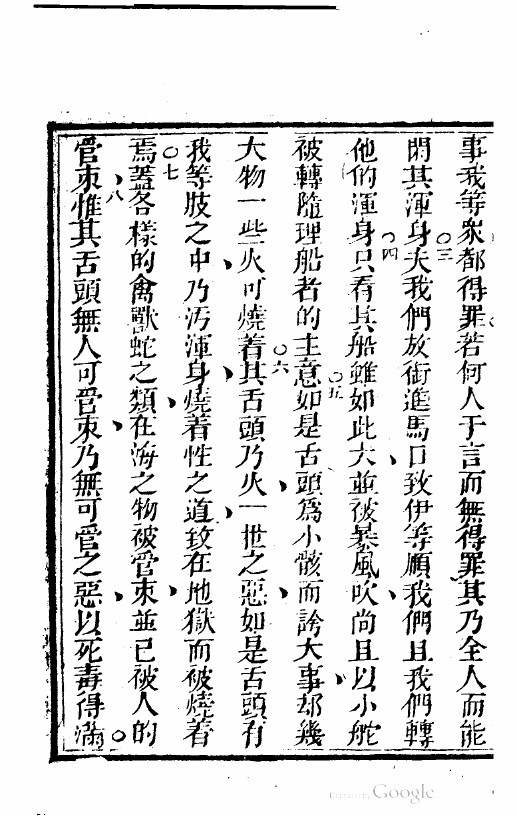 事我等衆都得罪若何人于言而無得罪其乃全人而能
三閑其渾身夫我們放銜進馬口致伊等順我們且我們轉
四他的渾身只看其船雖如此大並被暴風吹尚且以小舵
被轉隨理船者的主意五如是舌頭爲小骸而誇大事却幾
大物一些火可燒着六其舌頭乃火一世之惡如是舌頭有
我等肢之中乃汚渾身燒着性之道致在地獄而被燒着
七焉蓋各樣的禽獸蛇之類在海之物被管束並已被人的
管束八惟其舌頭無人可管束乃無可管之惡以死毒得滿
Google